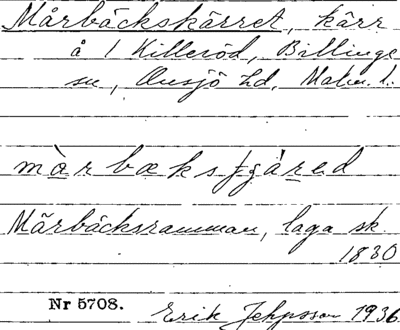 Mårbäckskärret, kärr
å 1 Killeröd, Billinge
sn, Onsjö hd, Malm. l.
Mårbäcksramman, laga sk.
1830
Nr 5708.
Erik Jeppsson 1936